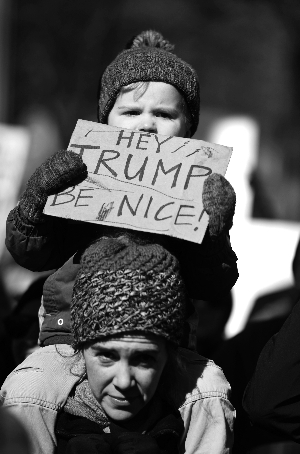 HEY
TRUMP
BE NICE!